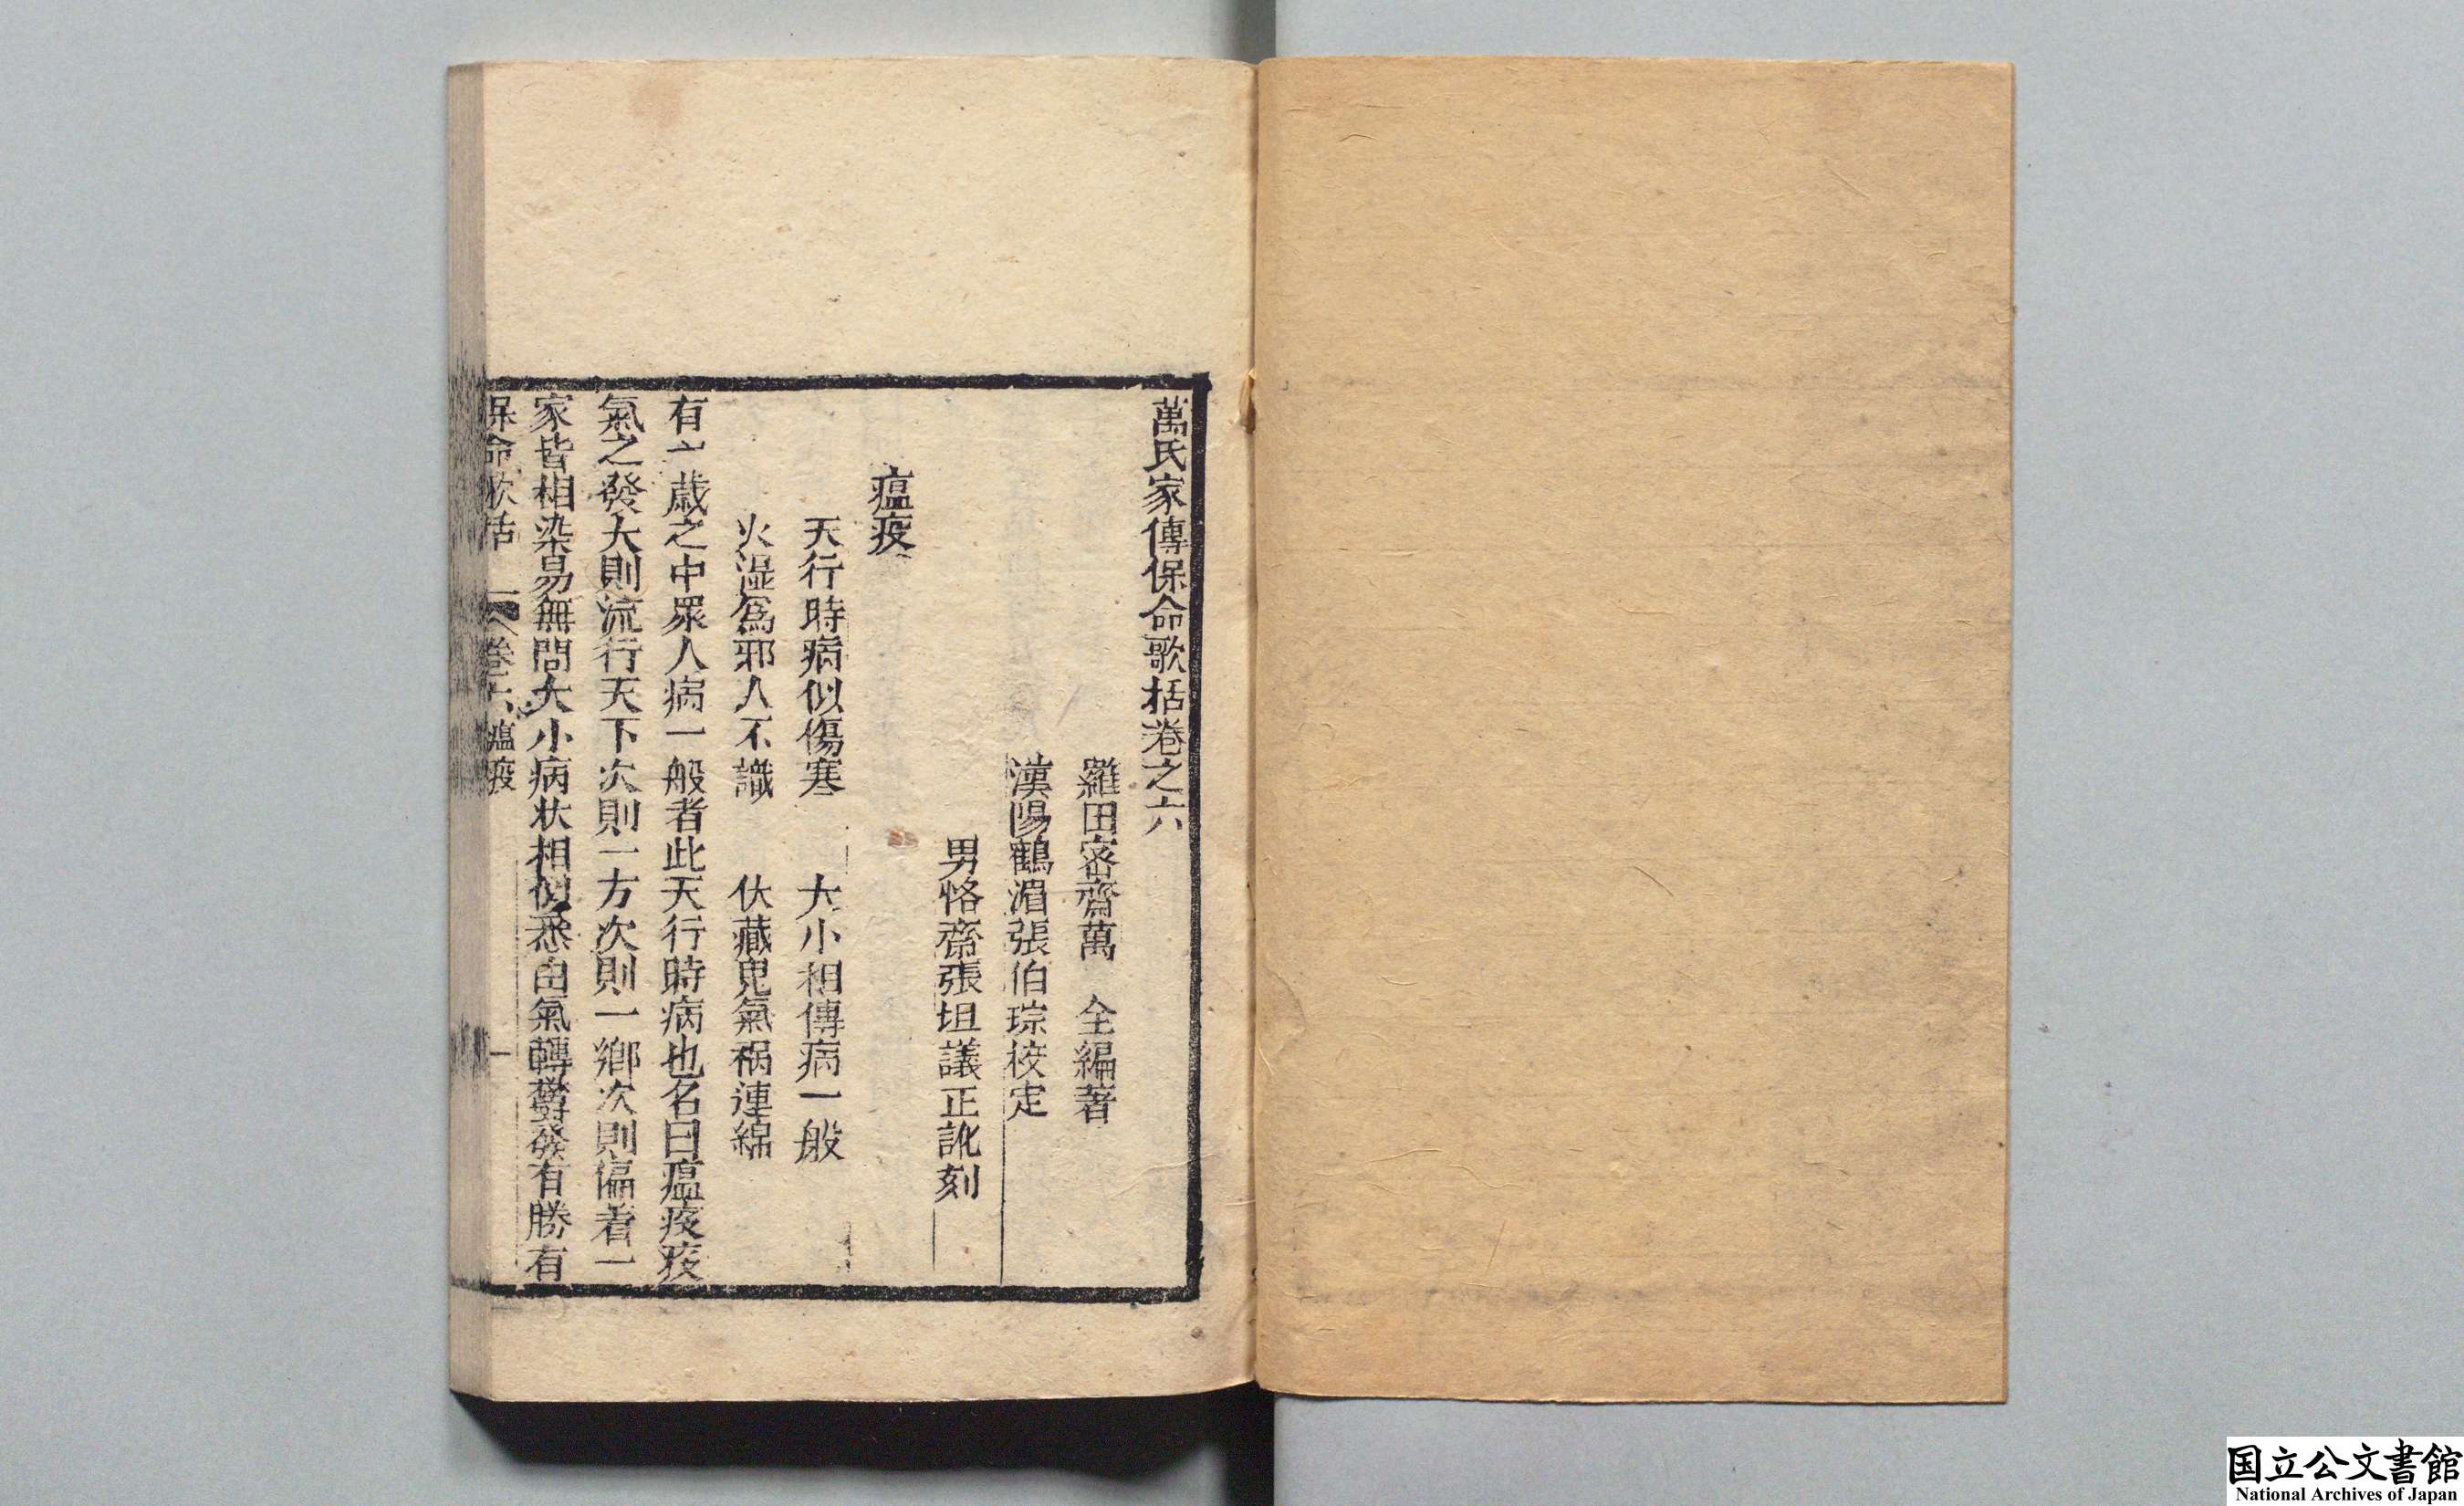 萬氏家傳保命歌括卷之六
羅田密齋萬　全編著
漢陽鶴湄張伯琮挍定
男恪齋張坦議正訛刻
瘟疫
天行時病似傷寒　大小相傳病一般
火濕爲邪人不識　伏藏鬼氣禍連綿
有一歲之中眾人病一般者此天行時病也名曰瘟疫疫
氣之發大則流行天下次則一方次則一鄉次則偏着一
家皆相染易無問大小病状相似悉由氣轉鬱發有勝有
保命歌括　卷六　瘟疫　一
国立公文書館
National Archives of Japan